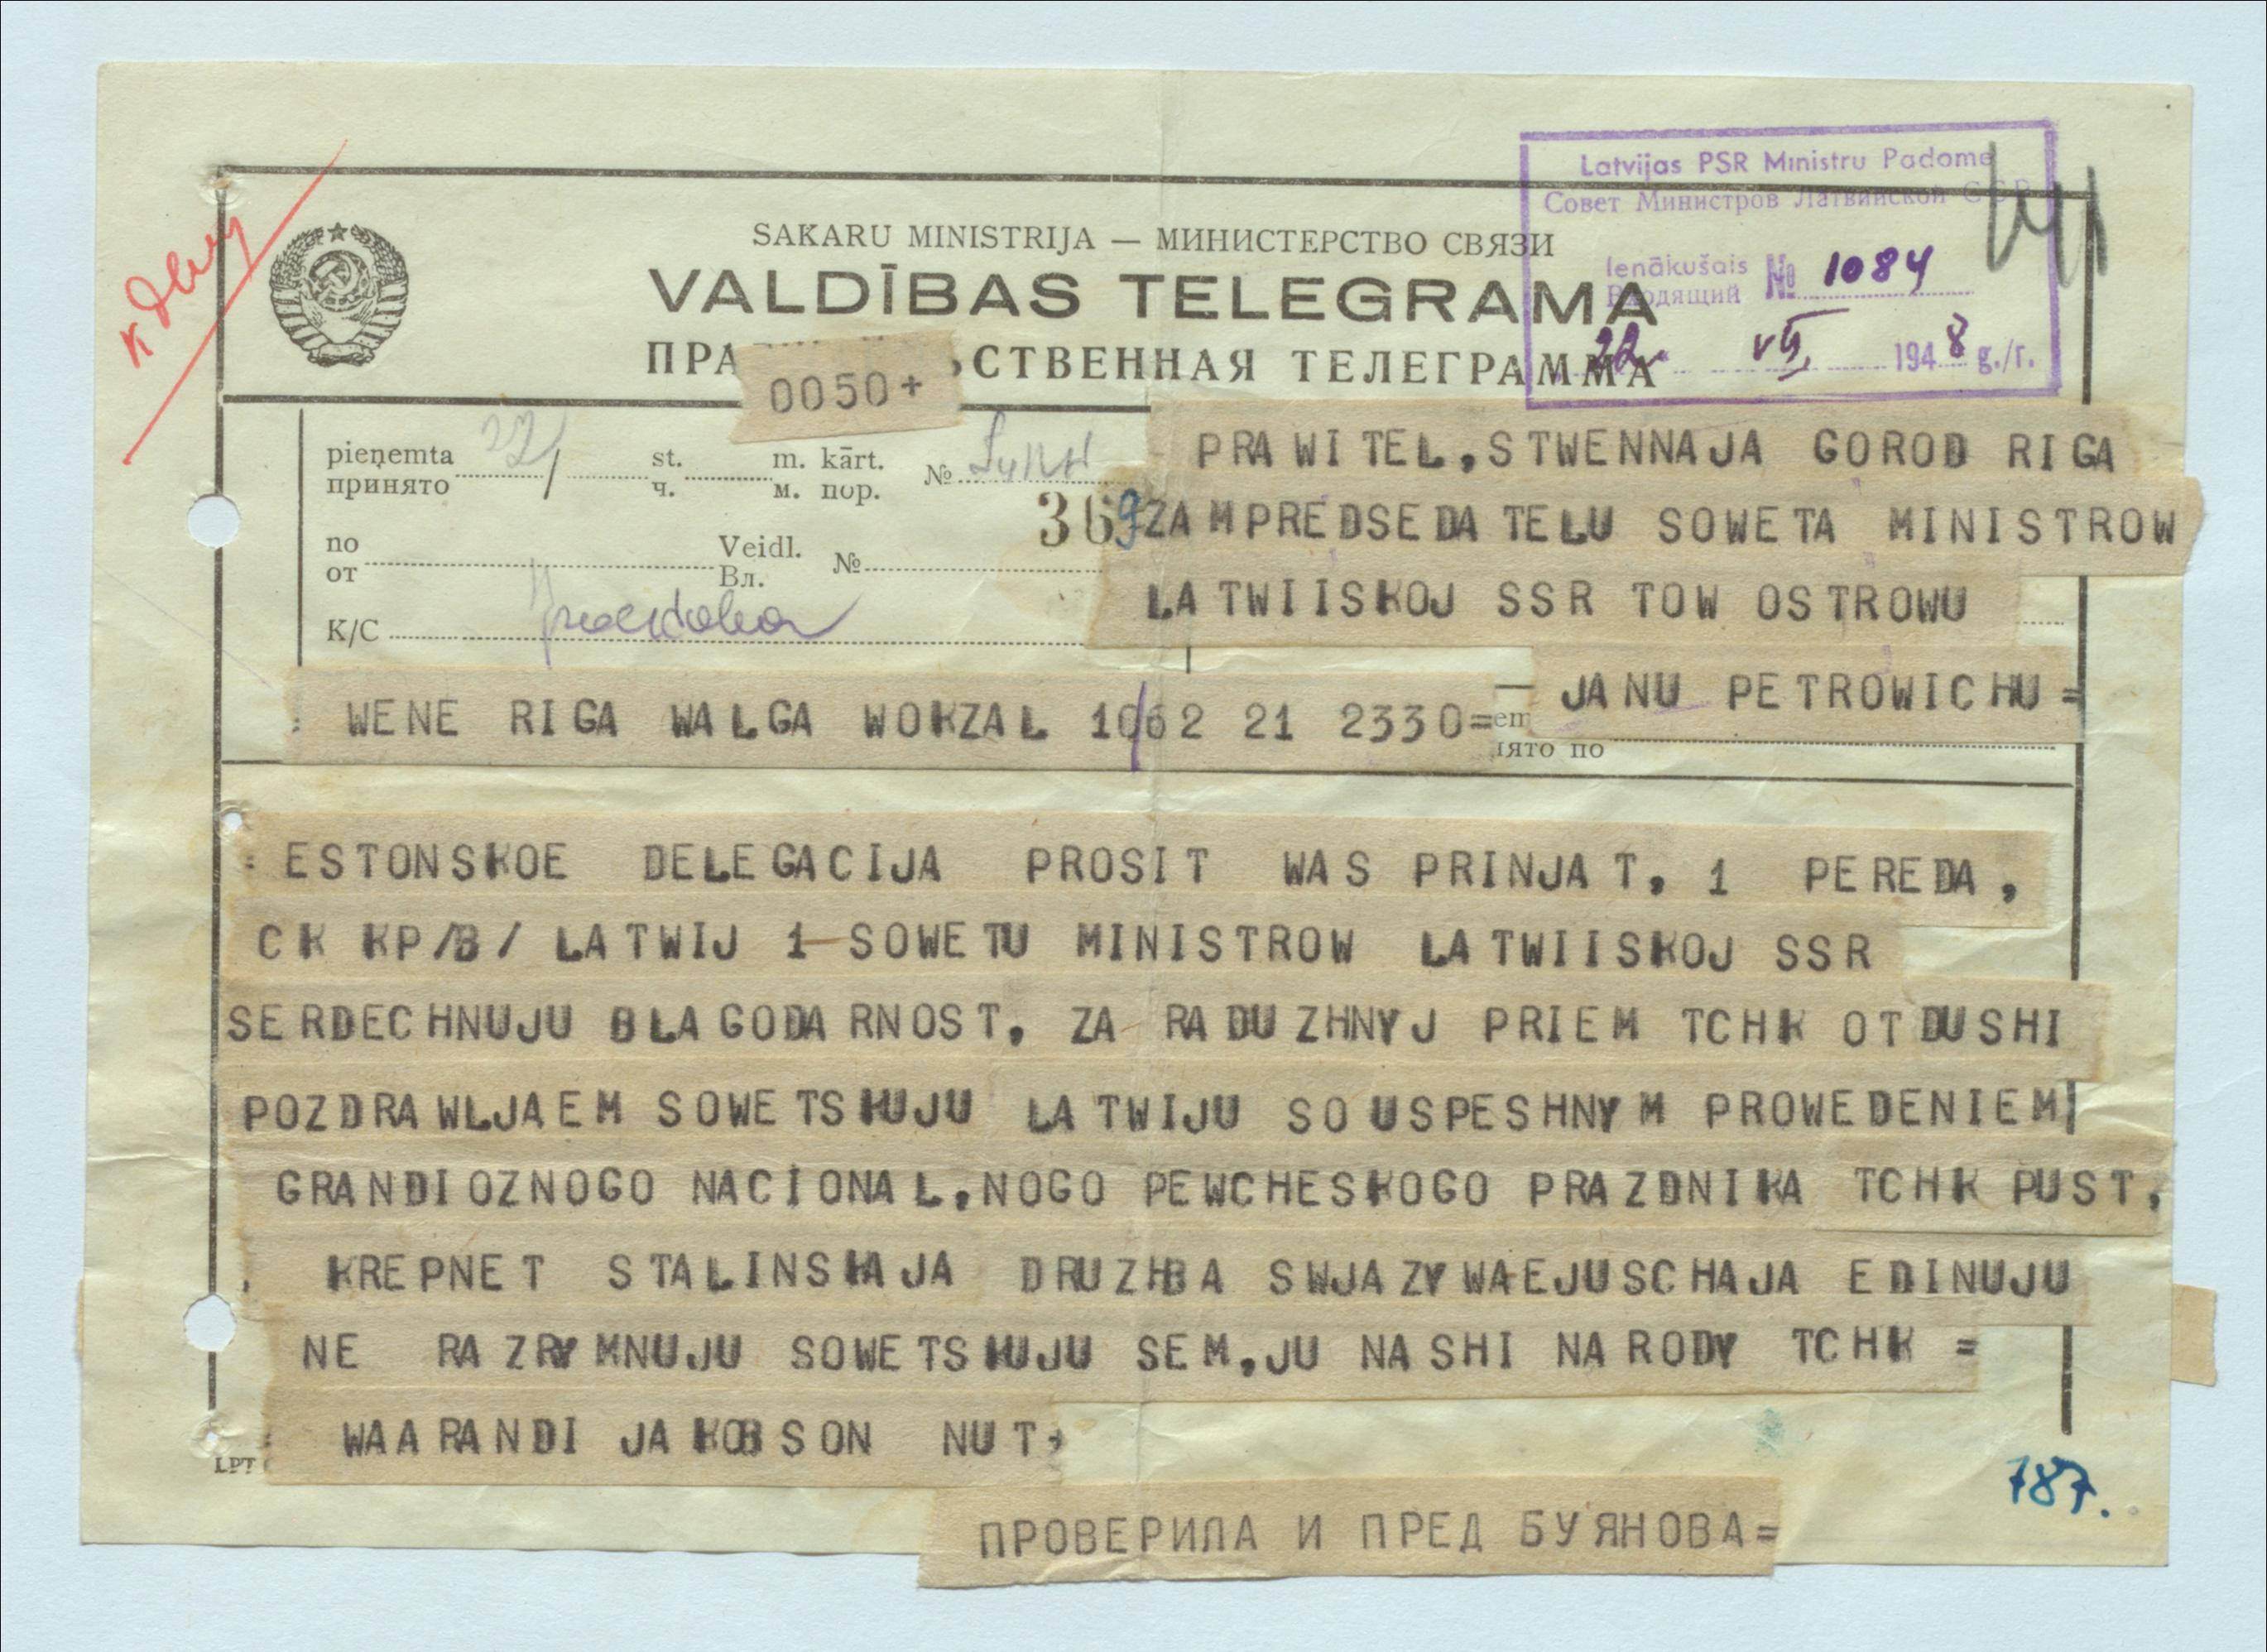 к делу
Latvijas PSR Ministru Padome
Совет Министров Латвийской ССР
Ienākušais
Входящий № 1084
22. VII. 1948 g./г.
SAKARU MINISTRIJA — МИНИСТЕРСТВО СВЯЗИ
VALDĪBAS TELEGRAMA
ПРА ЬСТВЕННАЯ ТЕЛЕГРАММА
0050+
pieņemta 22/ st. m. kārt. №
принято ч. м. пор.
369
no Veidl. №
от Вл.
K/C
PRAWITEL,STWENNAJA GOROD RIGA
ZAMPREDSEDATELU SOWETA MINISTROW
LATWIISKOJ SSR TOW OSTROWU
— JANU PETROWICHU=
WENE RIGA WALGA WOKZAL 10/62 21 2330=
ят по
ESTONSKOE DELEGACIJA PROSIT WAS PRINJAT, 1 PEREDA,
CK KP/B/ LATWIJ 1 SOWETU MINISTROW LATWIISKOJ SSR
SERDECHNUJU BLAGODARNOST, ZA RADUZHNYJ PRIEM TCHK OTDUSHI
POZDRAWLJAEM SOWETSKUJU LATWIJU SO USPESHNYM PROWEDENIEM
GRANDIOZNOGO NACIONAL,NOGO PEWCHESKOGO PRAZDNIKA TCHK PUST,
KREPNET STALINSKAJA DRUZHBA SWJAZYWAEJUSCHAJA EDINUJU
NE RAZRYMNUJU SOWETSKUJU SEM,JU NASHI NARODY TCHK =
WAARANDI JAKOBSON NUT,
LPT
787.
ПРОВЕРИЛА И ПРЕД БУЯНОВА=